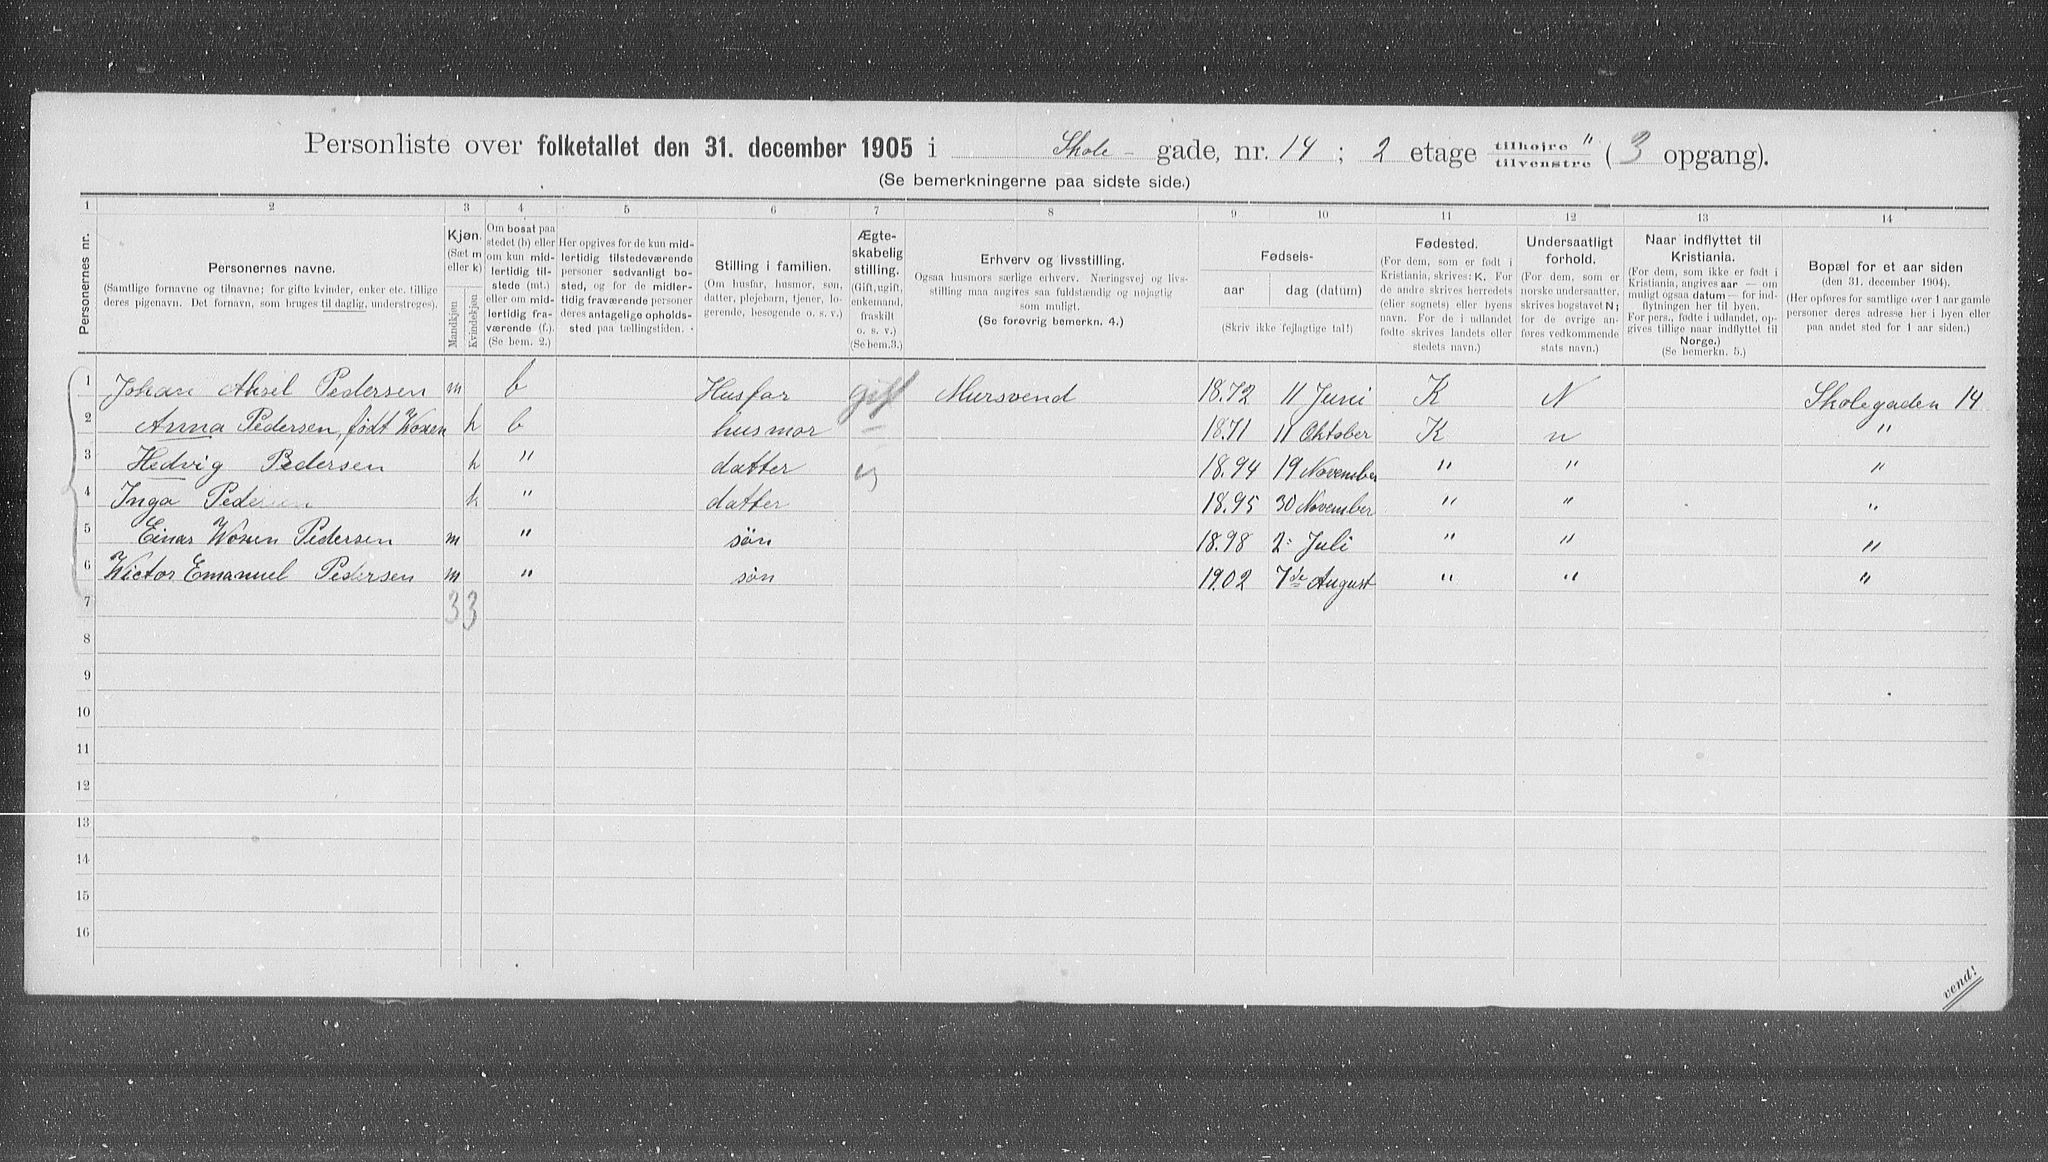 Personliste over folketallet den 31. december 1905 i Skole- gade, nr. 14 ; 2 etage tilhøjre " tilvenstre (3 opgang).
(Se bemerkningerne paa sidste side.)
1 2 3 4 5 6 7 8 9 10 11 12 13 14
Personernes nr.
Personernes navne.
(Samtlige fornavne og tilnavne; for gifte kvinder, enker etc. tillige
deres pigenavn. Det fornavn, som bruges til daglig, understreges).
Kjøn.
(Sæt m
eller k)
Mandkjøn
Kvindekjøn
Om bosat paa
stedet (b) eller
om kun mid-
lertidig til-
stede (mt.)
eller om mid-
lertidig fra-
værende (f.).
(Se bem. 2.)
Her opgives for de kun mid-
lertidig tilstedeværende
personer sedvanligt bo-
sted, og for de midler-
tidig fraværende personer
deres antagelige opholds-
sted paa tællingstiden.
Stilling i familien.
(Om husfar, husmor, søn,
datter, plejebarn, tjener, lo-
gerende, besøgende o. s. v.)
Ægte-
skabelig
stilling.
(Gift, ugift,
enkemand,
fraskilt
o. s. v.)
(Se bem.3.)
Erhverv og livsstilling.
Ogsaa husmors særlige erhverv. Næringsvej og livs-
stilling maa angives saa fuldstændig og nøjagtig
som muligt.
(Se forøvrig bemerkn. 4.)
Fødsels-
aar dag (datum)
(Skriv ikke fejlagtige tal!)
Fødested.
(For dem, som er født i
Kristiania, skrives: K. For
de andre skrives herredets
(eller sognets) eller byens
navn. For de i udlandet
fødte skrives landets eller
stedets navn.)
Undersaatligt
forhold.
(For dem, som er
norske undersaatter,
skrives bogstavet N;
for de øvrige an-
føres vedkommende
stats navn.)
Naar indflyttet til
Kristiania.
(For dem, som ikke er født i
Kristiania, angives aar — om
muligt ogsaa datum — for ind-
flytningen her til byen.
For pers., fødte i udlandet, op-
gives tillige naar indflyttet til
Norge.)
(Se bemerkn. 5.)
Bopæl for et aar siden
(den 31. december 1904).
(Her opføres for samtlige over 1 aar gamle
personer deres adresse her i byen eller
paa andet sted for 1 aar siden.)
1 Johan Aksel Pedersen m b Husfar gift Mursvend 1872 11 Juni K N Skolegaden 14
2 Anna Pedersen, født Woxen k b husmor " 1871 11 Oktober K n "
3 Hedvig Pedersen k " datter ug 1894 19 November " " "
4 Inga Pedersen k " datter 1895 30 November " " "
5 Einar Woxen Pedersen m " søn 1898 2: Juli " " "
6 Wictor Emanuel Pedersen m " søn 1902 7de August " " "
7 3 3
8
9
10
11
12
13
14
15
16
vend!